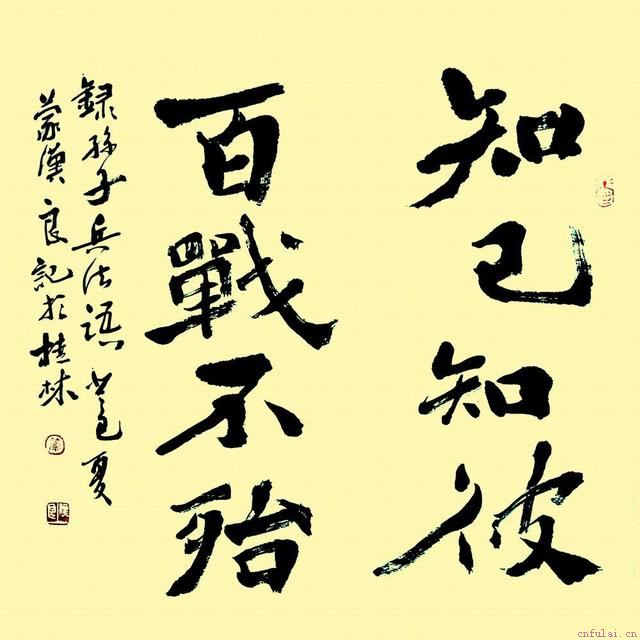 知己知彼
百戰不殆
録孫子兵法語夏
蒙漢良記於桂林
cnfulai.cn